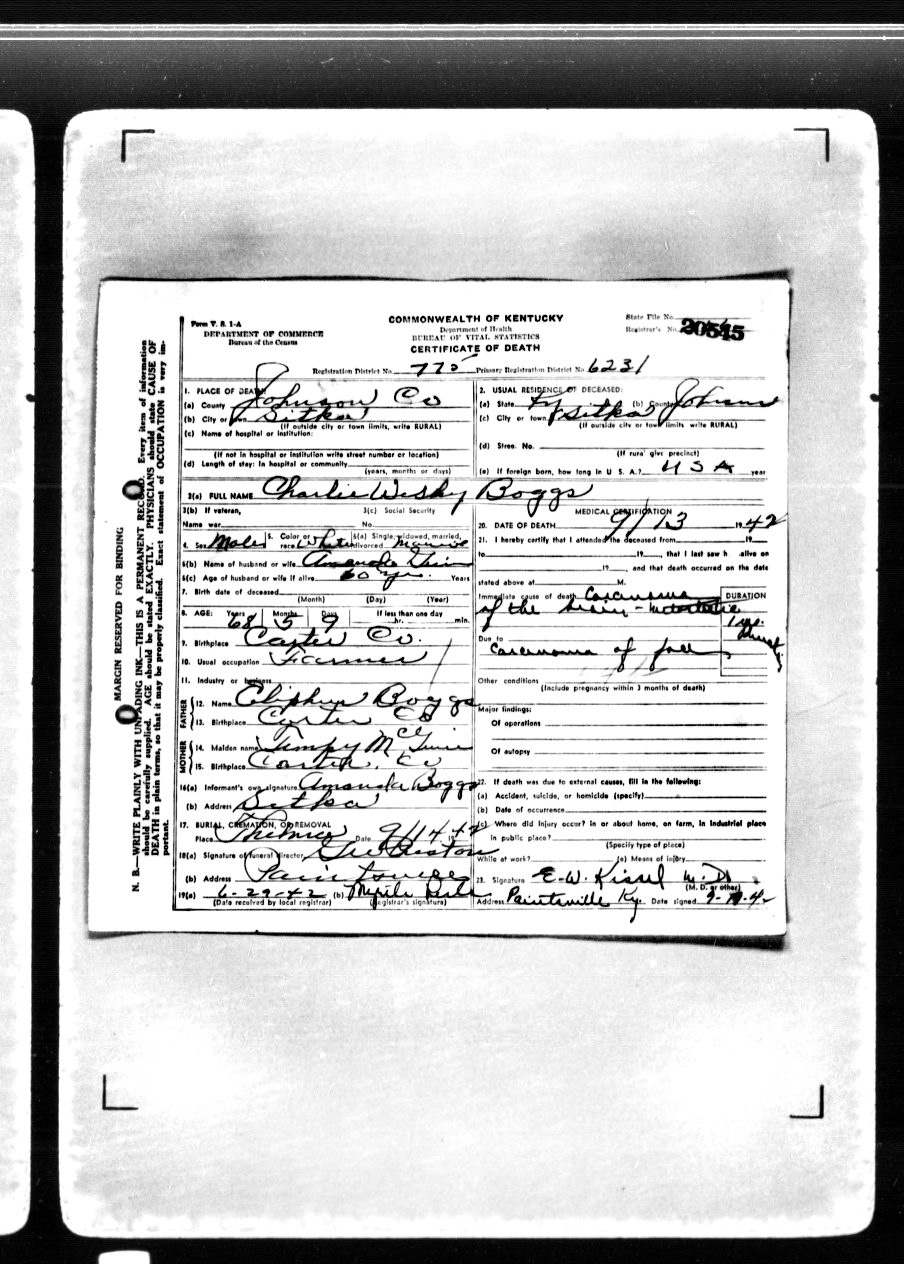 Form V. S. 1-A
DEPARTMENT OF COMMERCE
Bureau of the Census
COMMONWEALTH OF KENTUCKY
Department of Health
BUREAU OF VITAL STATISTICS
CERTIFICATE OF DEATH
State File No.
Registrar's No. 20545
Registration District No. 775 Primary Registration District No. 6231
MARGIN RESERVED FOR BINDING
N. B.—WRITE PLAINLY WITH UNFADING INK—THIS IS A PERMANENT RECORD. Every item of information
should be carefully supplied. AGE should be stated EXACTLY. PHYSICIANS should state CAUSE OF
DEATH in plain terms, so that it may be properly classified. Exact statement of OCCUPATION is very im-
portant.
1. PLACE OF DEATH:
(a) County Johnson Co
(b) City or town Sitka
(If outside city or town limits, write RURAL)
(c) Name of hospital or institution:
(If not in hospital or institution write street number or location)
(d) Length of stay: In hospital or community
(years, months or days)
2. USUAL RESIDENCE OF DECEASED:
(a) State Ky (b) County Johnson
(c) City or town Sitka
(If outside city or town limits write RURAL)
(d) Street No.
(If rural give precinct)
(e) If foreign born, how long in U. S. A.? USA year
3(a) FULL NAME Charlie Wesley Boggs
3(b) If veteran, 3(c) Social Security
Name war No.
4. Sex Male 5. Color or race White 6(a) Single, widowed, married, divorced
6(b) Name of husband or wife Amanda
6(c) Age of husband or wife if alive 60 yrs. Years
7. Birth date of deceased
(Month) (Day) (Year)
8. AGE: Years Months Days If less than one day
68 5 9 hr. min.
9. Birthplace Carter Co.
10. Usual occupation Farmer
11. Industry or business
FATHER
12. Name Boggs
13. Birthplace Carter Co
MOTHER
14. Maiden name
15. Birthplace Carter Co
16(a) Informant's own signature Amanda Boggs
(b) Address Sitka
17. BURIAL, CREMATION, OR REMOVAL
Place Thelma Date 9/14 42
18(a) Signature of funeral director Geo Preston
(b) Address Paintsville
19(a) 6-29-42 (b) Myrtle
(Date received by local registrar) (Registrar's signature)
MEDICAL CERTIFICATION
20. DATE OF DEATH 9/13 1942
21. I hereby certify that I attended the deceased from 19
to 19, that I last saw h alive on
19, and that death occurred on the date
stated above at M.
Immediate cause of death Carcinoma DURATION
of the brain - metastatic
1 yr.
Due to
Carcinoma of face
Other conditions
(Include pregnancy within 3 months of death)
Major findings:
Of operations
Of autopsy
22. If death was due to external causes, fill in the following:
(a) Accident, suicide, or homicide (specify)
(b) Date of occurrence
(c) Where did injury occur? in or about home, on farm, in industrial place
in public place?
(Specify type of place)
While at work? (e) Means of injury
23. Signature E. W. Kissel M. D.
(M. D. or other)
Address Paintsville Ky. Date signed